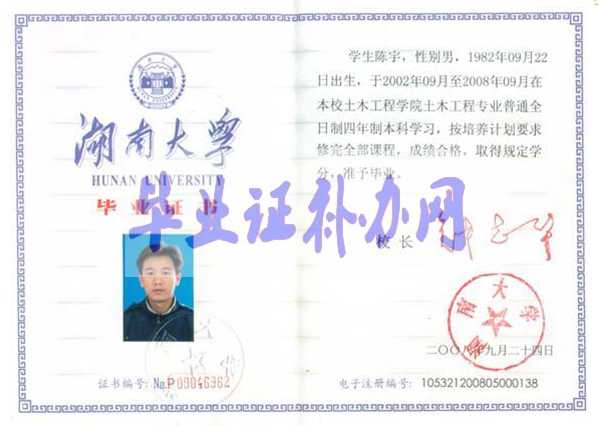 湖南大学
HUNAN UNIVERSITY
毕业证书
证书编号: No.P 09046962
学生陈宇,性别男,1982年09月22
日出生,于2002年09月至2008年09月在
本校土木工程学院土木工程专业普通全
日制四年制本科学习,按培养计划要求
修完全部课程,成绩合格,取得规定学
分,准予毕业。
校长
湖南大学
二〇〇八年九月二十四日
电子注册编号: 105321200805000138
毕业证补办网